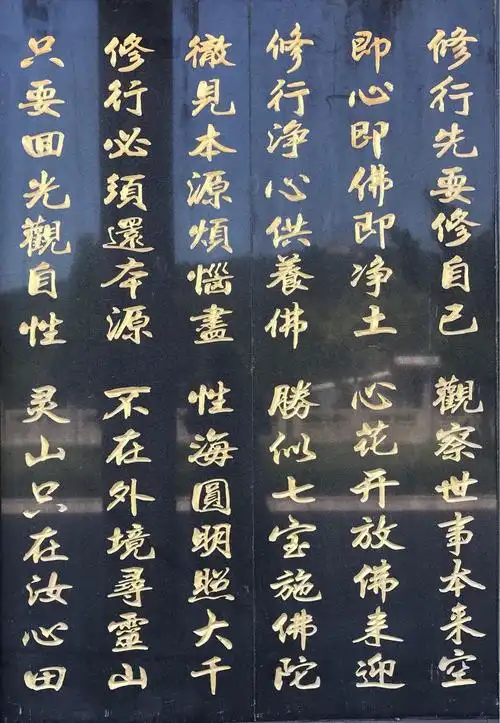 修行先要修自己 觀察世事本来空
即心即佛即净土 心花开放佛来迎
修行净心供養佛 勝似七宝施佛陀
徹見本源煩惱盡 性海圓明照大千
修行必須還本源 不在外境尋靈山
只要回光觀自性 灵山只在汝心田